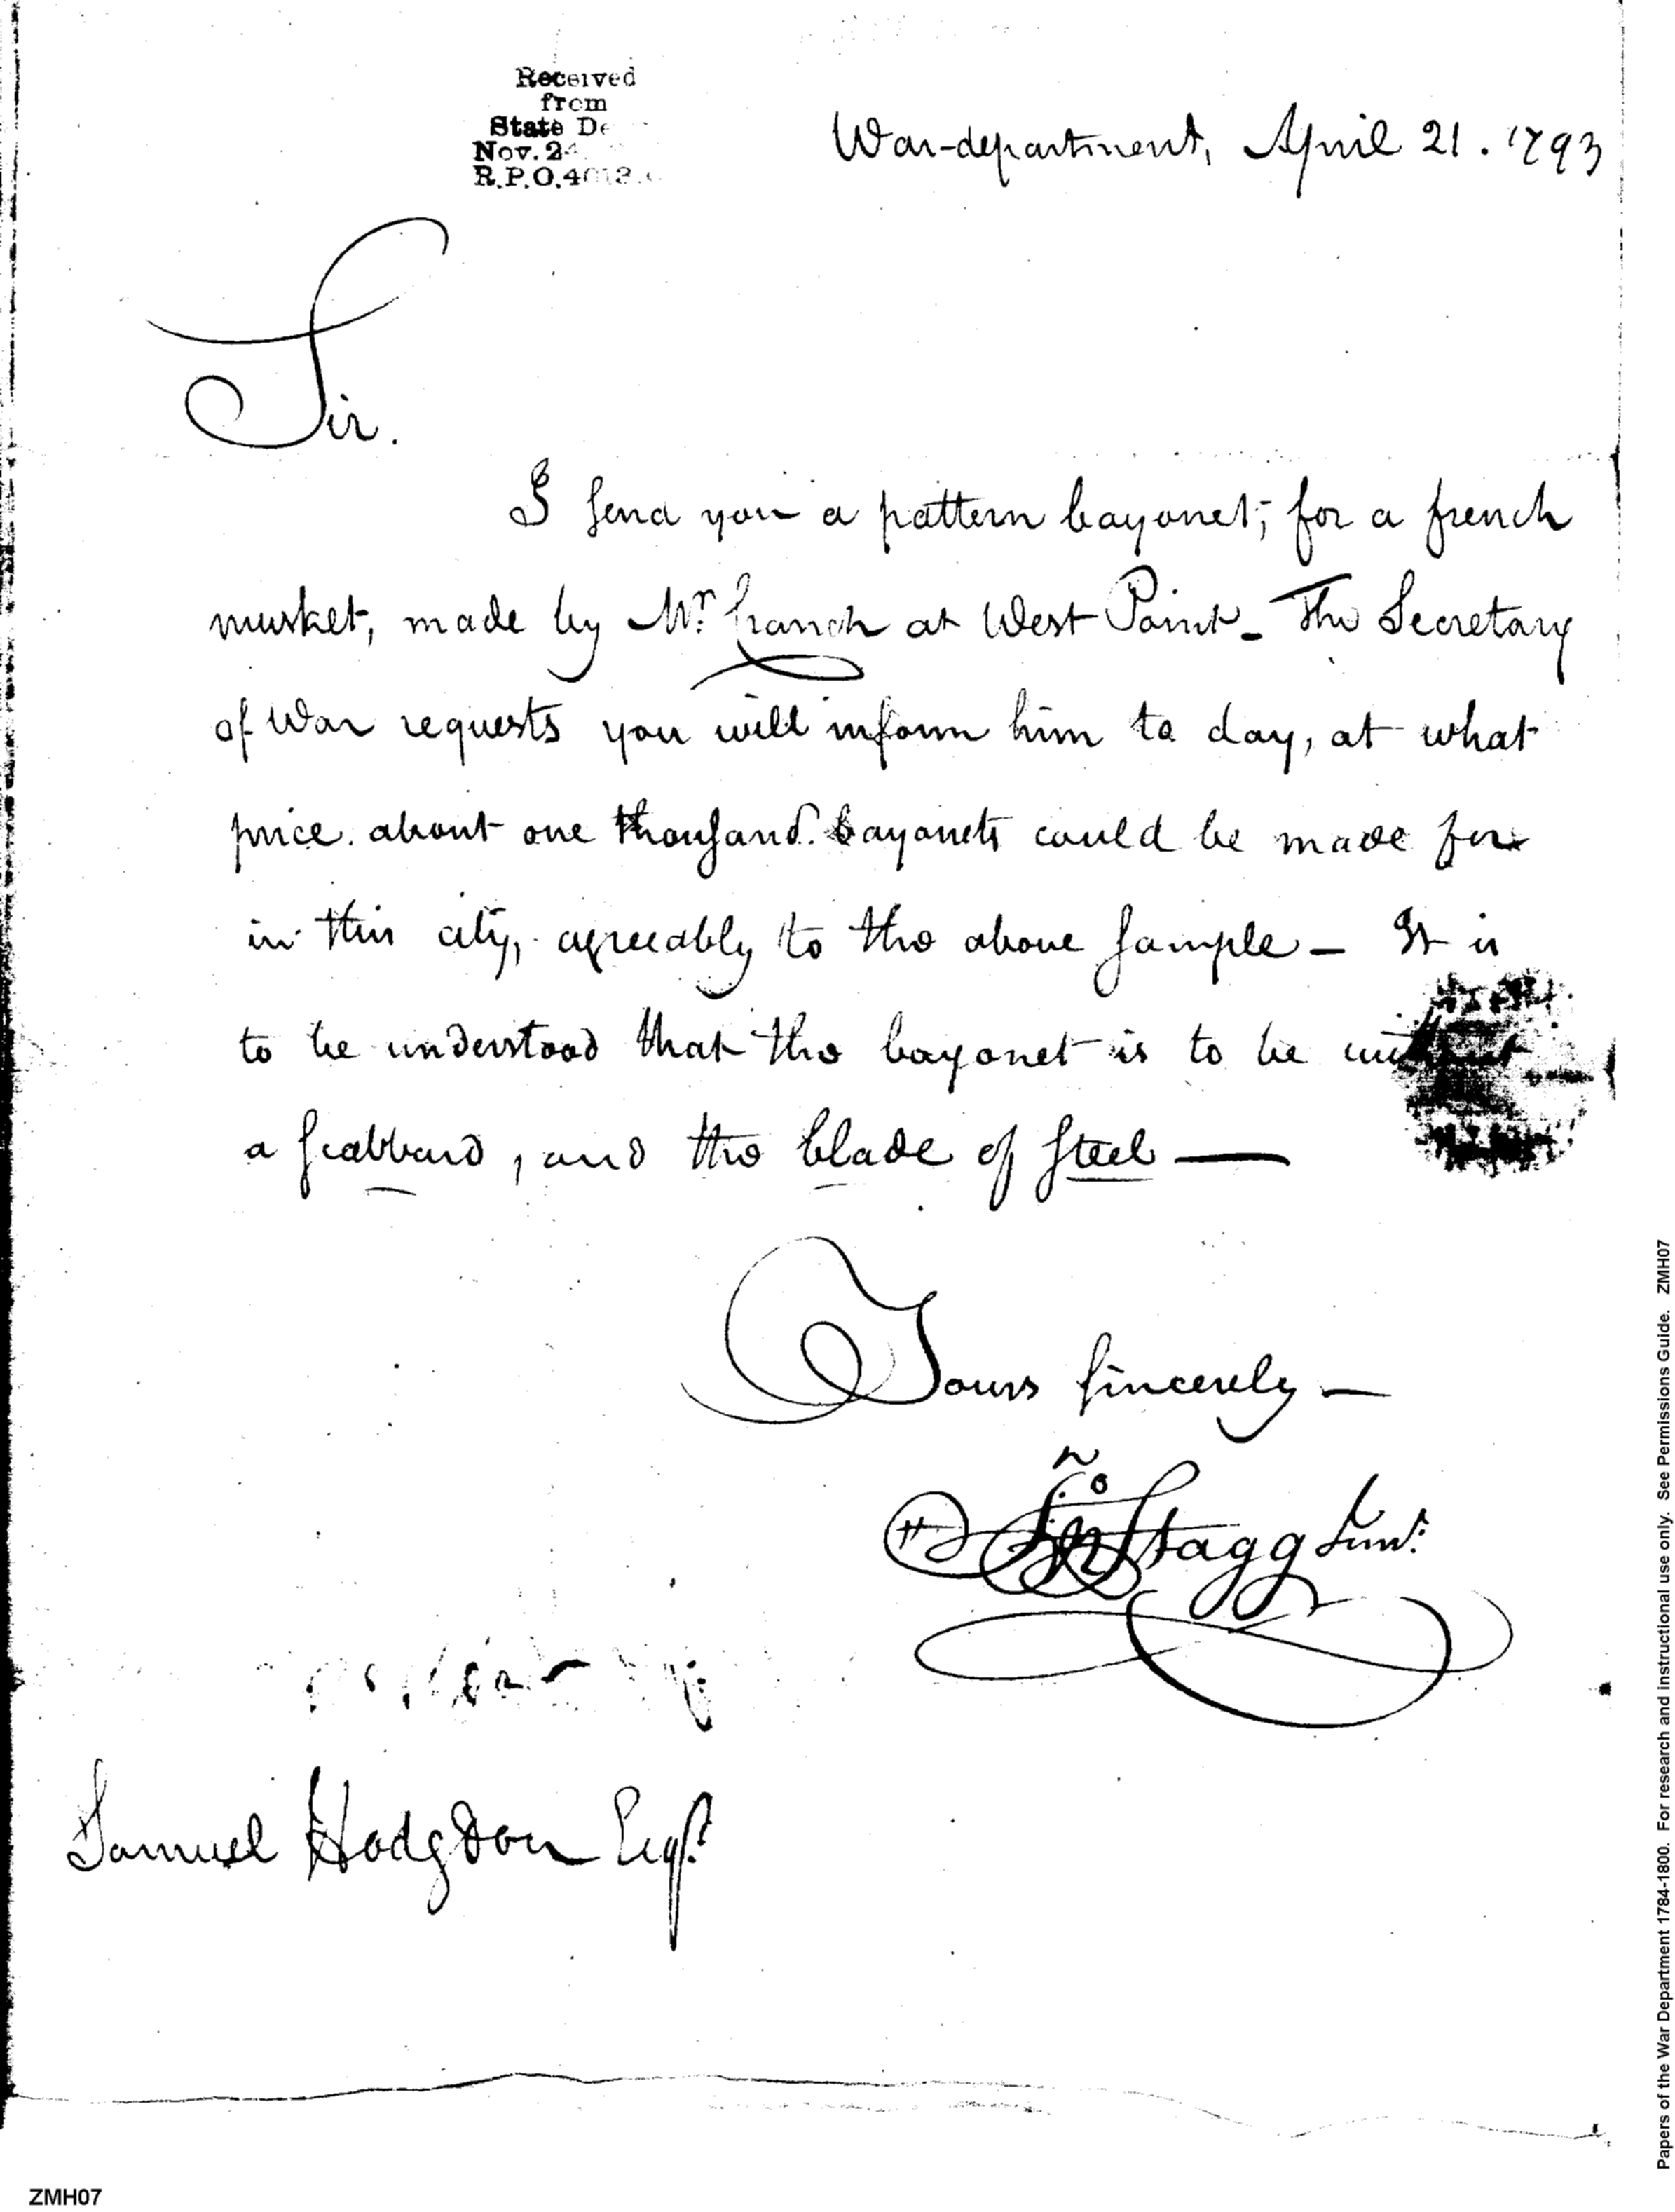 Received
from
State
Nov. 2
R.P.O.
War-department, April 21. 1793
Sir.
I send you a pattern bayonet, for a french
musket, made by Mr. Cranch at West Point - The Secretary
of War requests you will inform him to day, at what
price about one thousand bayonets could be made for
in this city, agreeably to the above sample - It is
to be understood that the bayonet is to be without
a scabbard, and the blade of steel -
Yours sincerely -
Jno Stagg Junr.
Samuel Hodgdon Esqr.
Papers of the War Department 1784-1800. For research and instructional use only. See Permissions Guide. ZMH07
ZMH07